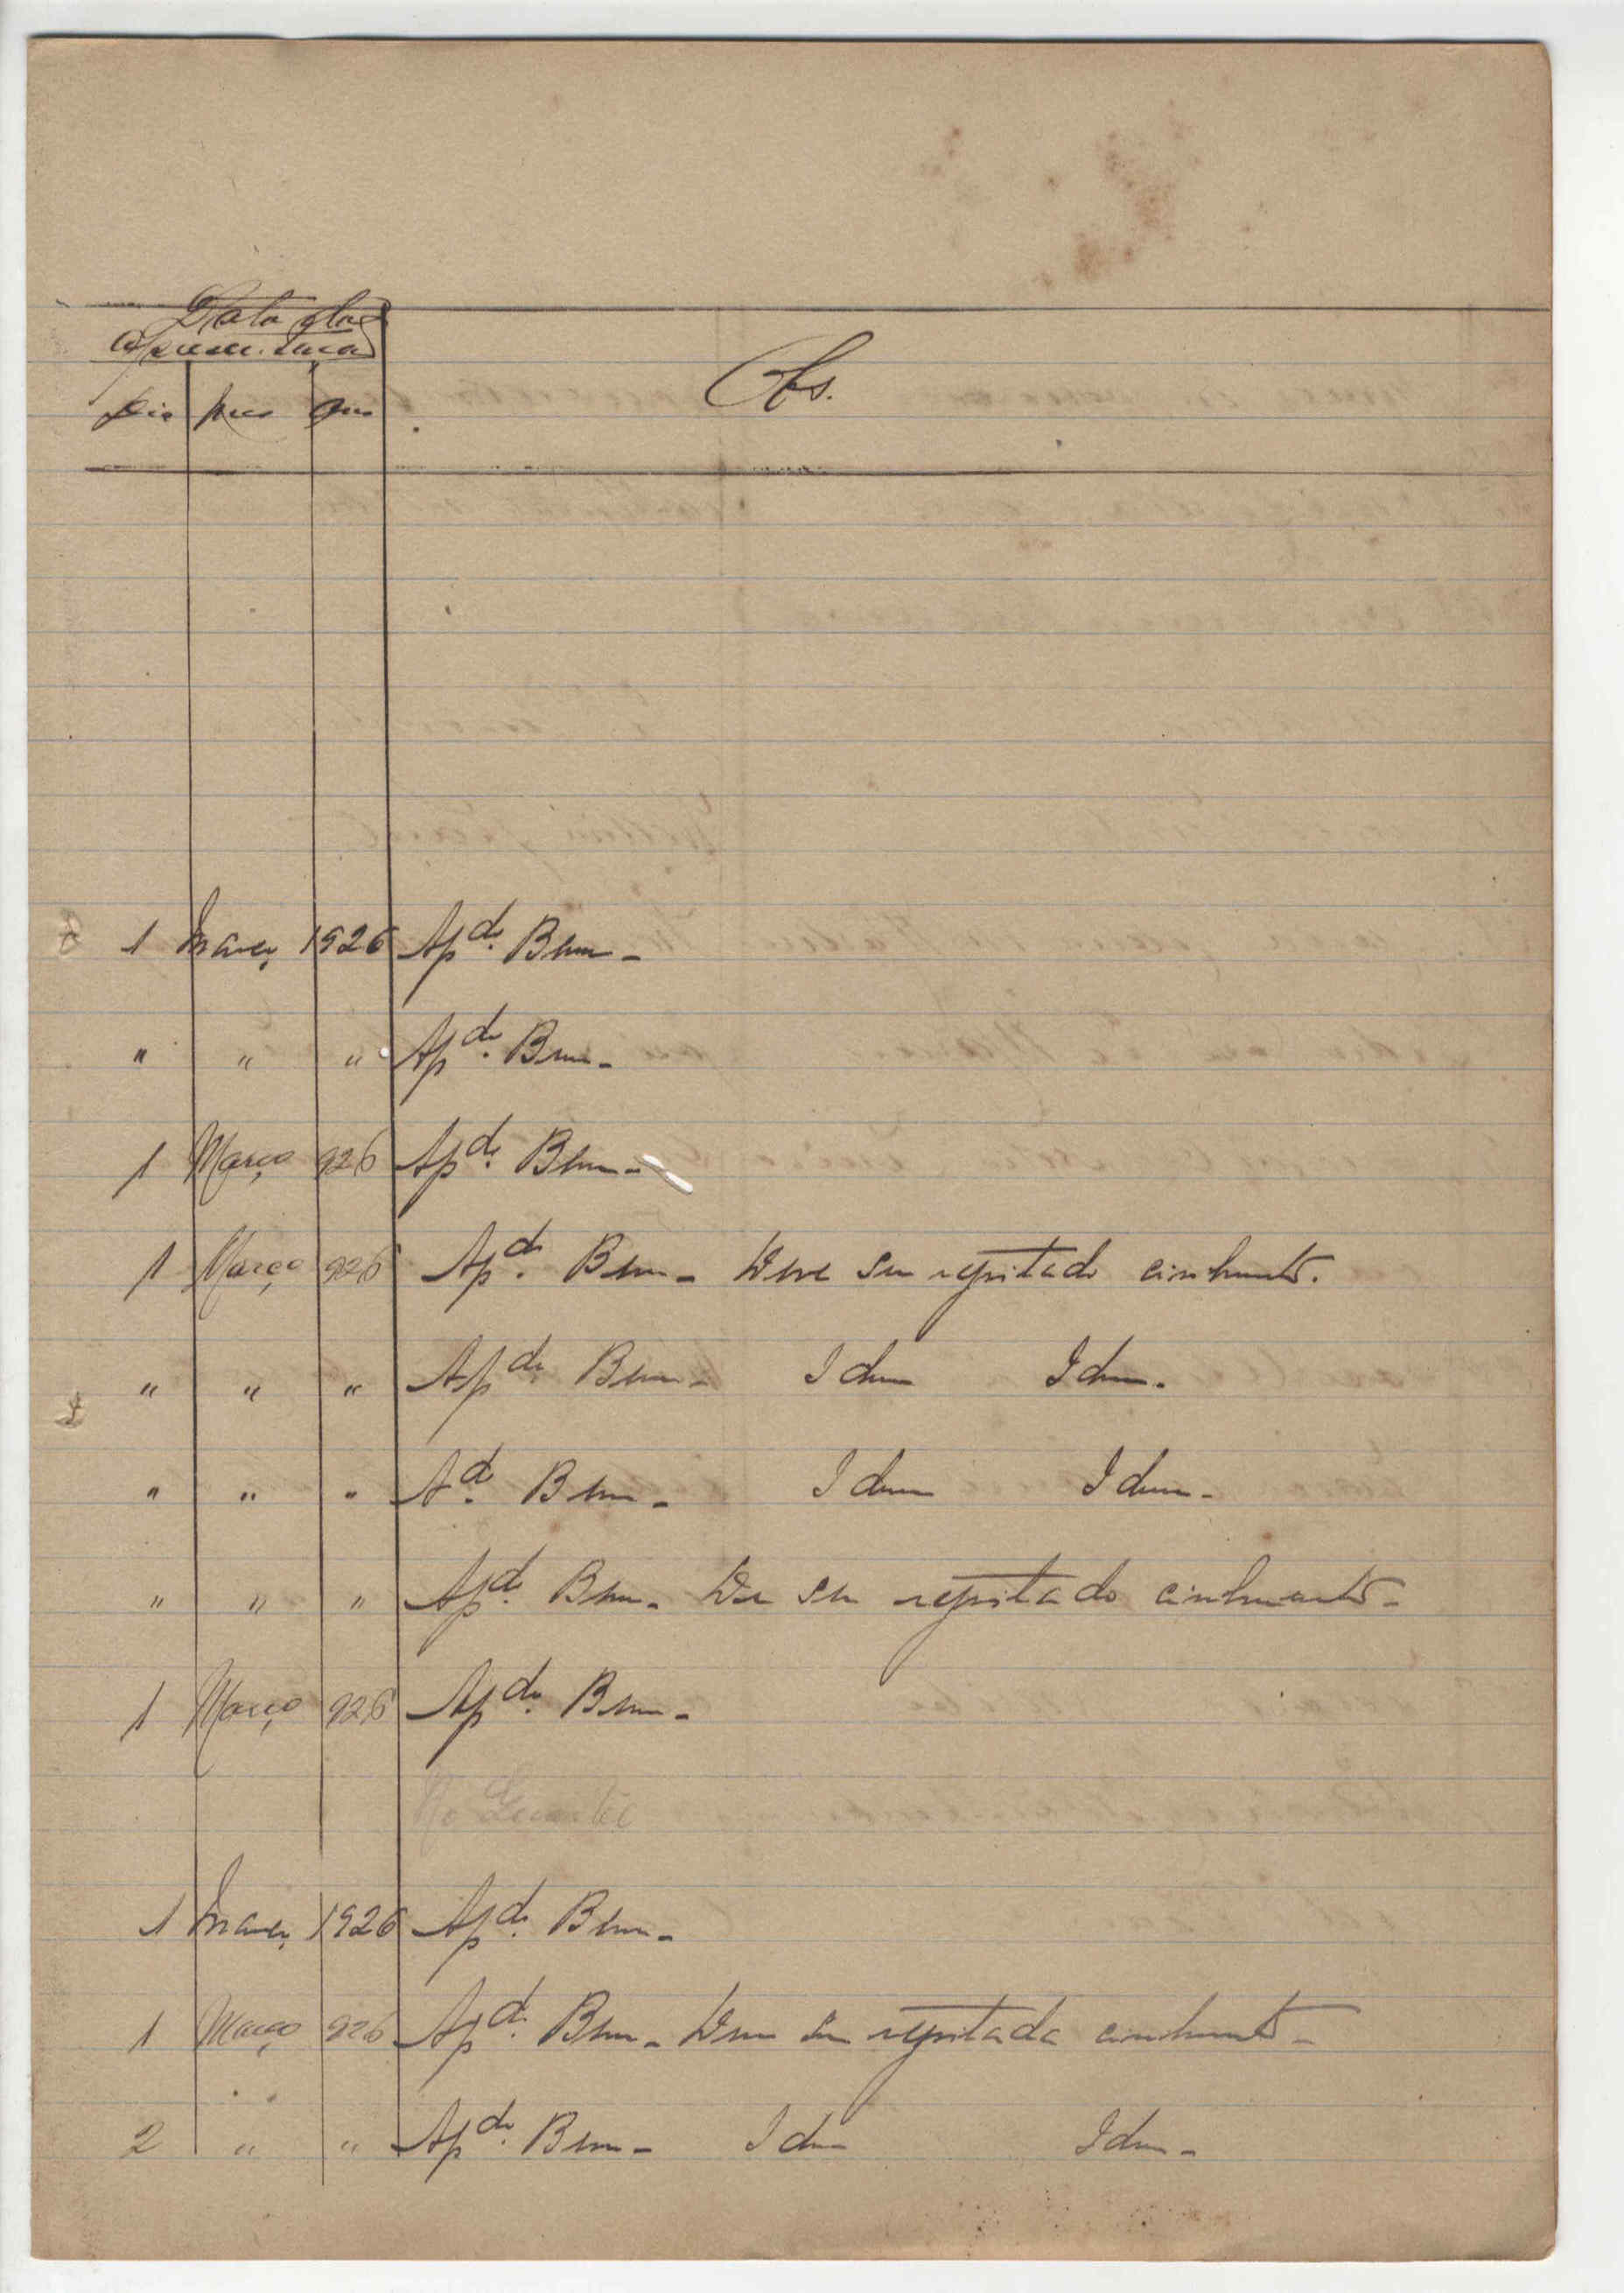 Data da
Apresentação
Dia mes ano
Obs.
1 Março 1926 Ap.do Bem -
" " " Ap.do Bem -
1 Março 926 Ap.do Bem -
1 Março 926 Ap.do Bem - Deve ser registado
" " " Ap.do Bem - Idem Idem.
" " " A.do Bem - Idem Idem -
" " " Ap.do Bem - ser registado
1 Março 926 Ap.do Bem -
1 Março 1926 Ap.do Bem -
1 Março 926 Ap.do Bem - ser registada
2 " " Ap.do Bem - Idem Idem -